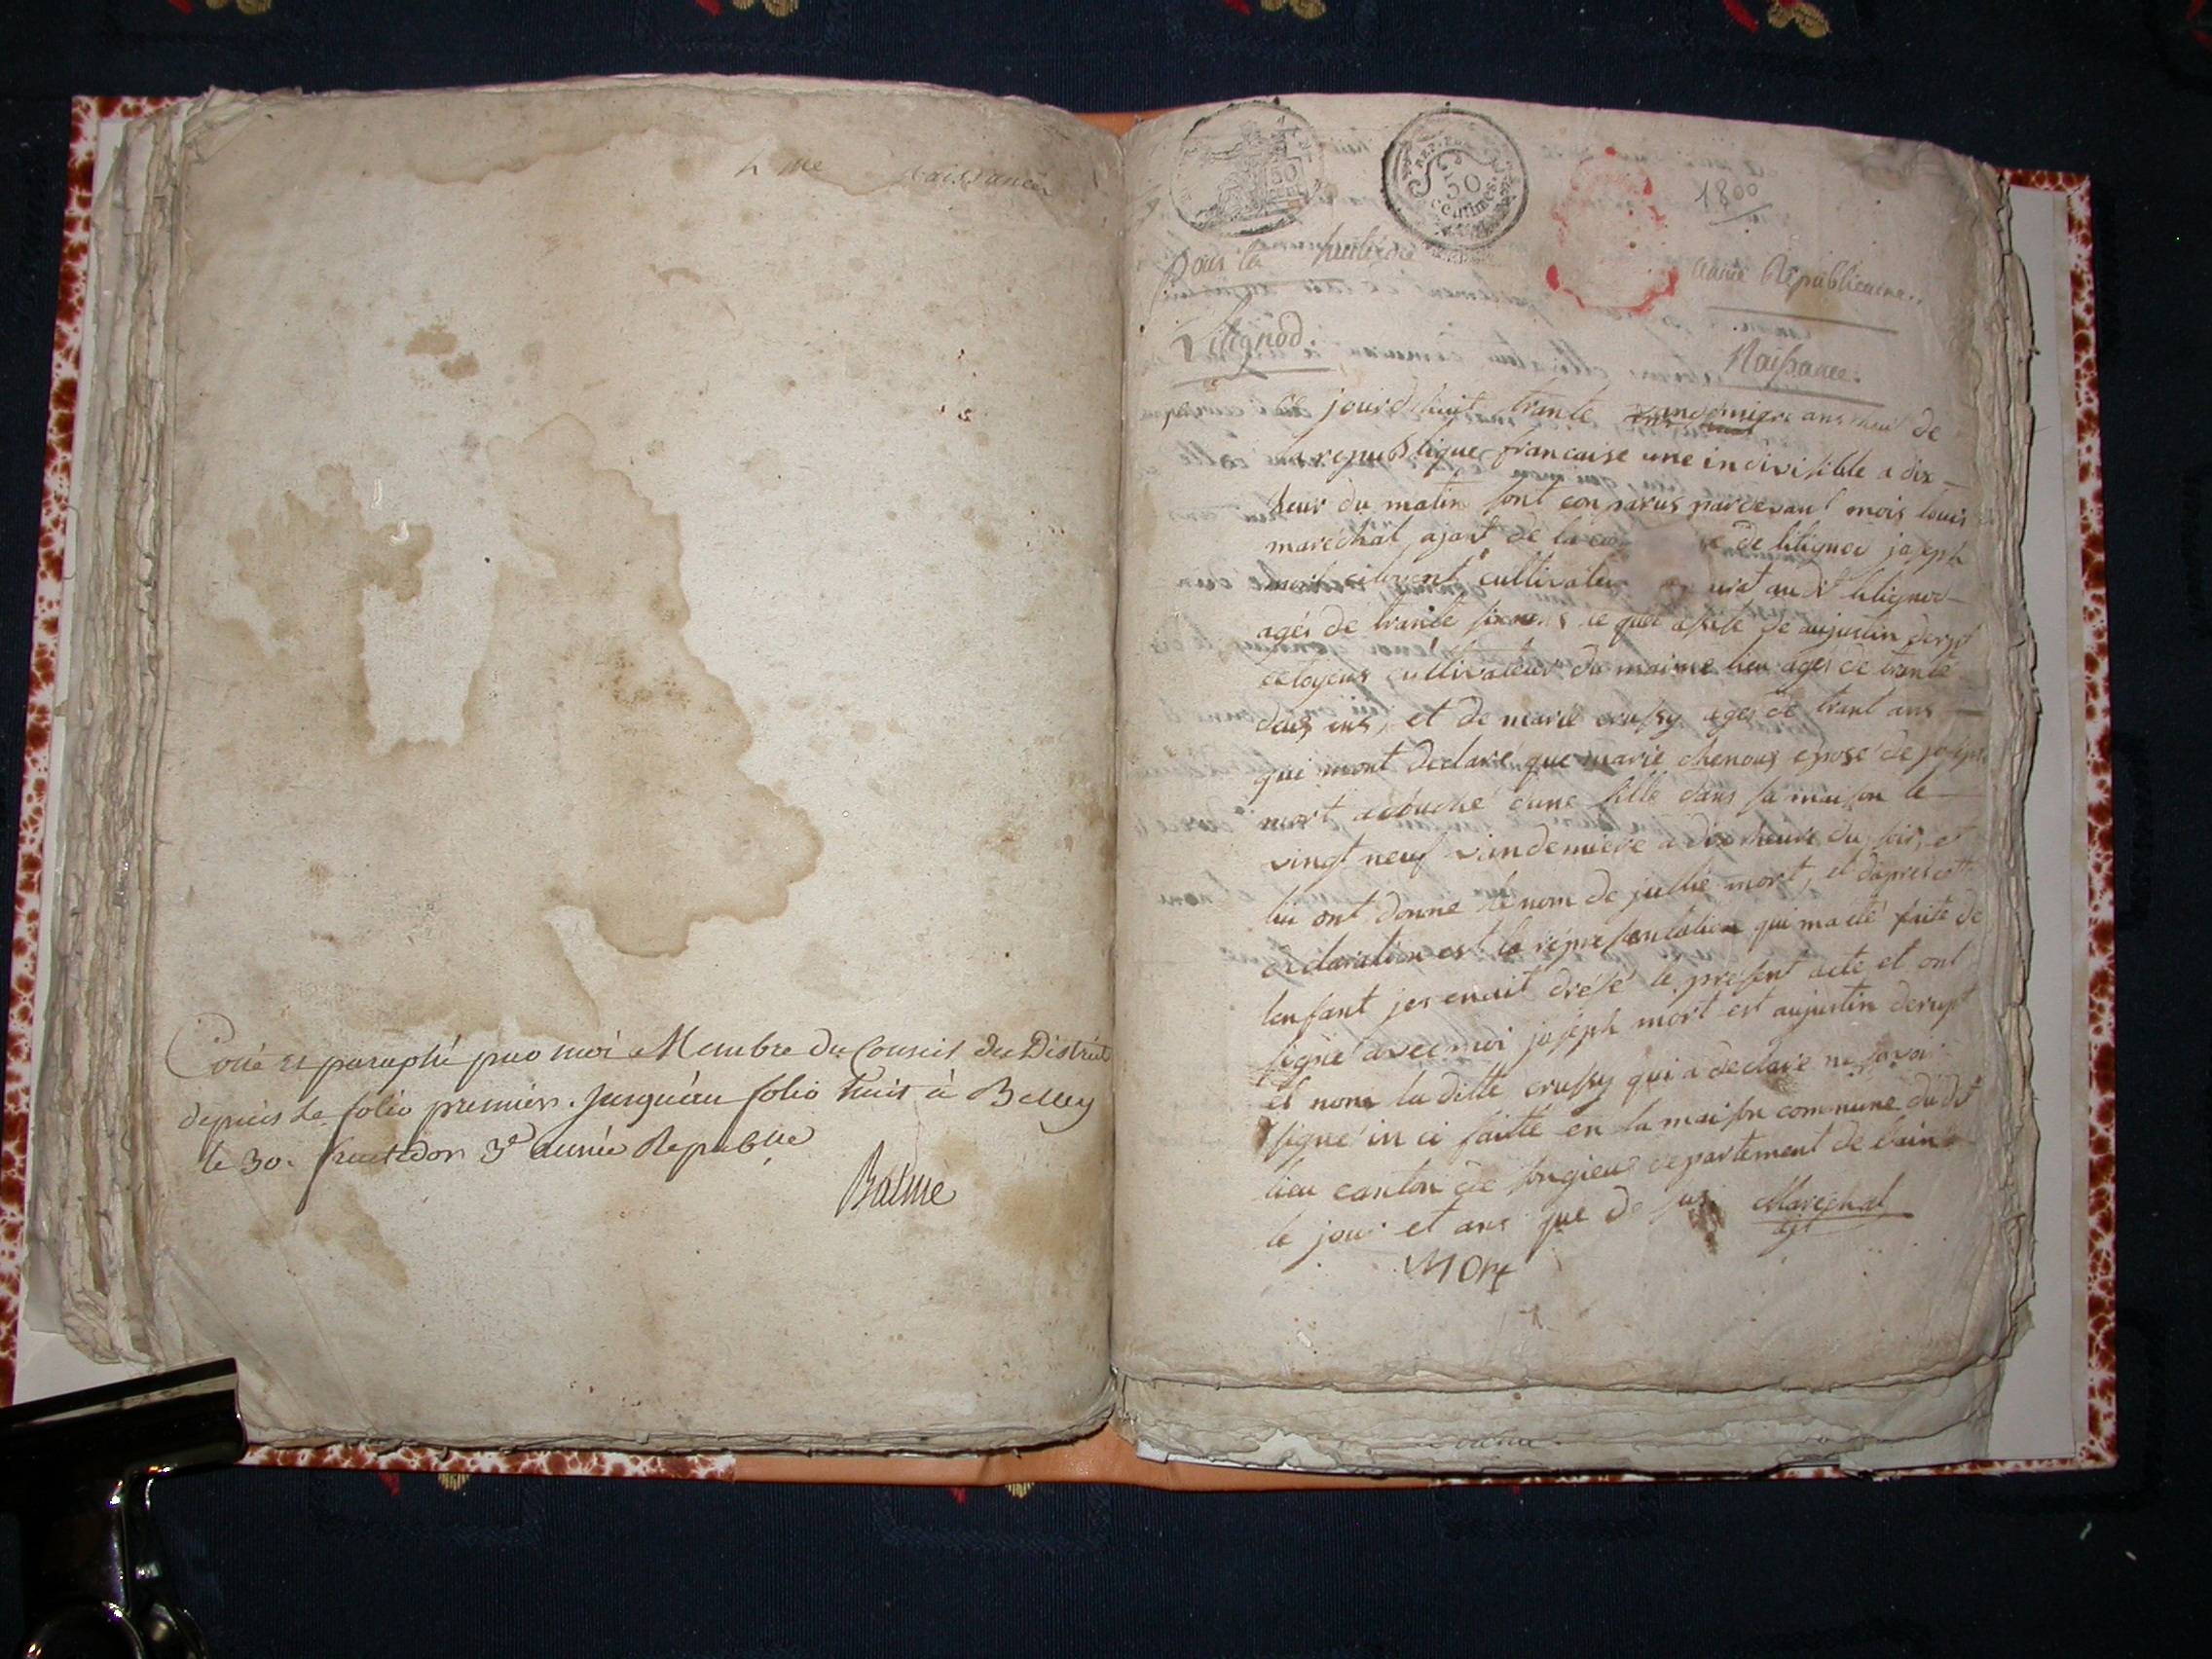 4 me naissances
Coté et paraphé par moi Membre du Conseil du District
depuis le folio premier. jusqu'au folio huit à Belley
le 30. fructidor 3e année Republ.
Balme
50 cent
REP. FRA
50
centimes.
1800
Pour la huitieme année Républicaine..
Lilignod.
Naissance.
Ce jourd'huit trante vandemiere ans huit de
la republique francaise une indivisible a dix
heur du matin sont conparus pardevant mois louis
marechal ajant de la de lilignod joseph
mort citoyent cultivateur audit lilignod
agés de trante de aujustin derupt
citoyens cultivateur du maime lieu agés de trante
deux ans, et de marie crussy agés de trant ans
qui mont declaré que marie chenoux epose de joseph
mort acouché dune fille dans sa maison le
vingt neuf vandemiere a dix heure du soir, et
lui ont donné le nom de jullie mort, et dapres cette
declaration est la representation qui ma été faite de
lenfant jes enait dresé le present acte et ont
signé avec moi joseph mort est aujustin derupt
et nom la ditte crussy qui a declare ne savoir
signé in ci faitte en la maison commune dudit
lieu canton de songieu departement de lain
le jour et ans que de sus Marechal
ajt
Mort